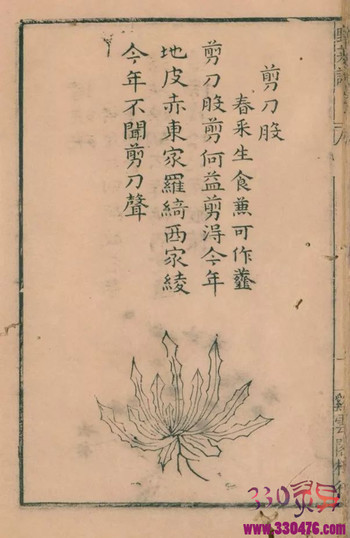 剪刀股
春采生食蒹可作虀
剪刀股剪何益剪淂今年
地皮赤東家羅綺西家綾
今年不聞剪刀聲
野菜譜
330
www.330476.com